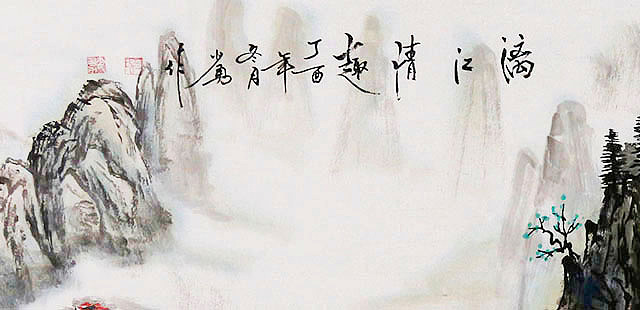 漓江清趣丁酉年冬月作